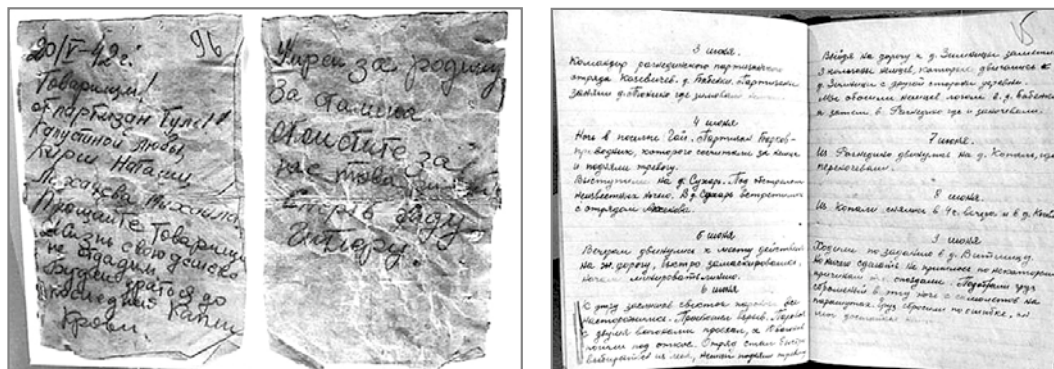 20/V-42 г. 96
Товарищи!
от партизан Тулы!
Капустиной Любы,
Михачева Михаила
Прощайте Товарищи
жизнь свою дешево
не отдадим
Будем драться до
последней капли
крови
Умрем за родину
За Сталина
отомстите за
нас товарищи
Смерть гаду
Гитлеру
3 июня.
Командир рогнединского партизанского
отряда Косевичев. д. Бабенко. Партизаны
заняли д. где зимовали
4 июня
Ночь в поселке Гай. Партизан Барков-
проводник, которого сосчитали за немца
и подняли тревогу.
Выступили на д. Сухарь. Под обстрелом
неизвестных ночью. В д. Сухарь встретились
с отрядом
5 июня
Вечером двинулись к месту действия
на ж. дорогу, быстро замаскировались,
начали минирование.
6 июня
К утру заслышав свисток паровоза все
насторожились. Произошел взрыв. Паровоз
с двумя вагонами проехал, а
пошли под откос. Отряд стал быстро
выбираться из леса, немцы подняли тревогу
15
Выйдя на дорогу к д. заметили
3 колонны немцев, которые двигались к
д. с другой стороны деревни.
Мы обошли немцев логом в д. Бабенко
а затем в Рогнедино где и заночевали.
7 июня.
Из Рогнедино двинулись на д. Копаль, где
переночевали.
8 июня.
Из Копали снялись в 4 с. вечера и в д.
9 июня
Ходили по заданию в д.
но ничего сделать не пришлось по некоторым
причинам т.к. опоздали. Подобрали груз
сброшенный в эту ночь с самолетов на
парашютах. Груз сбросили по ошибке,